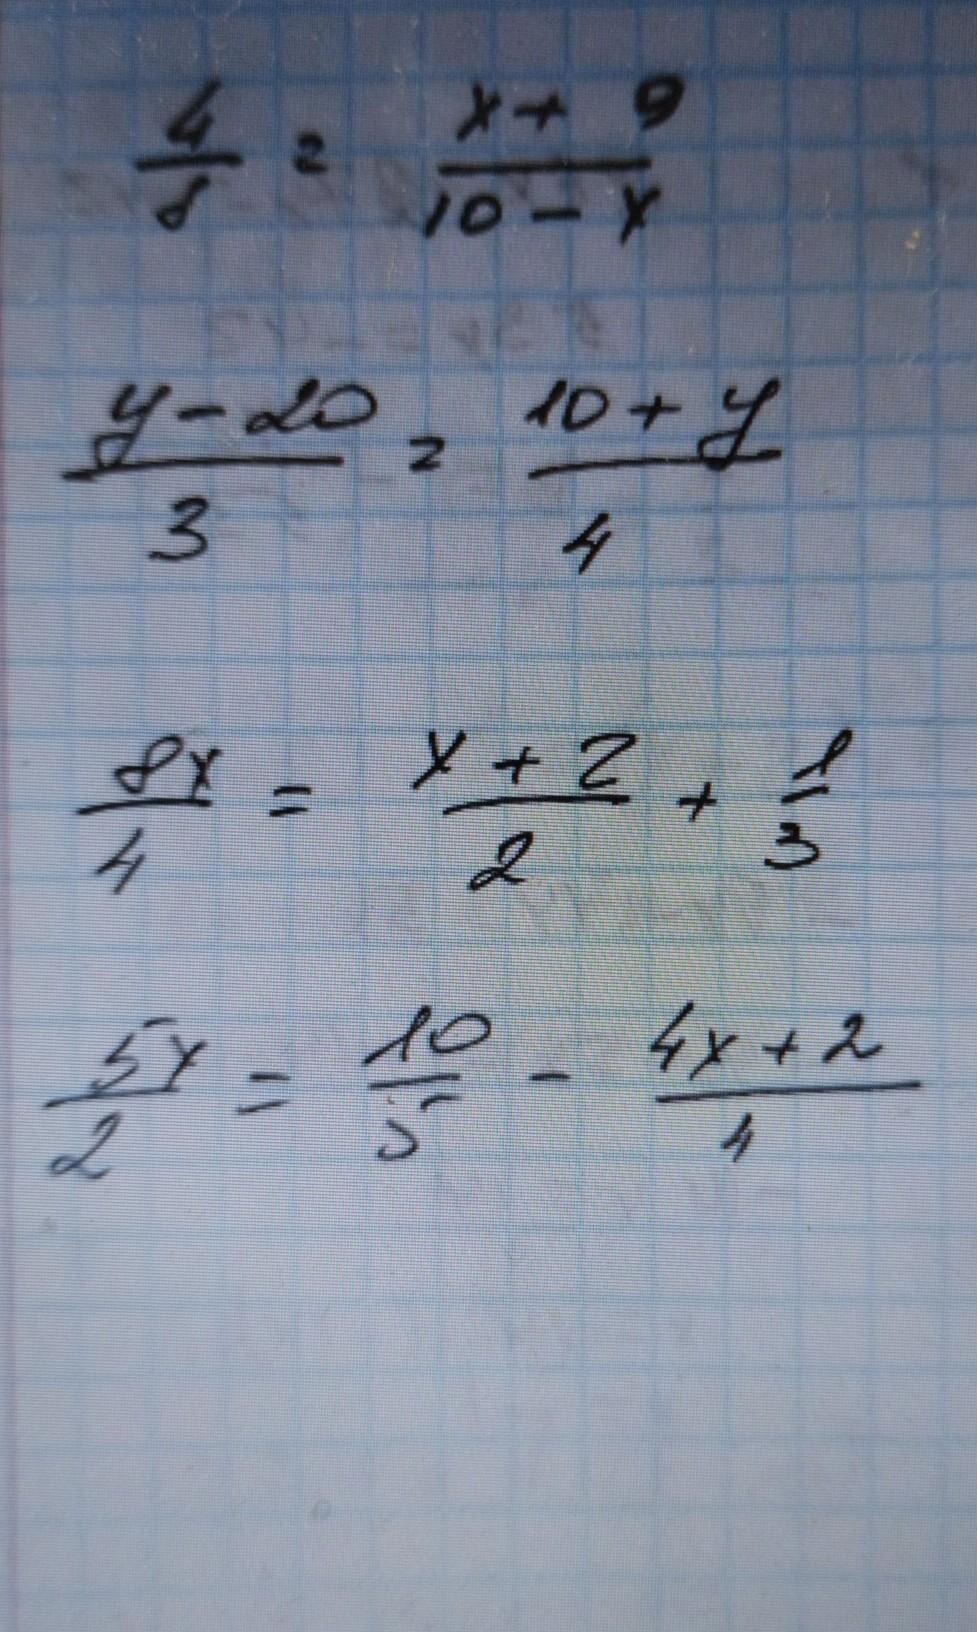 4/8 = x + 9/10 - x
y - 20/3 = 10 + y/4
8x/4 = x + 2/2 + 8/3
5x/2 = 10/5 - 4x + 2/4